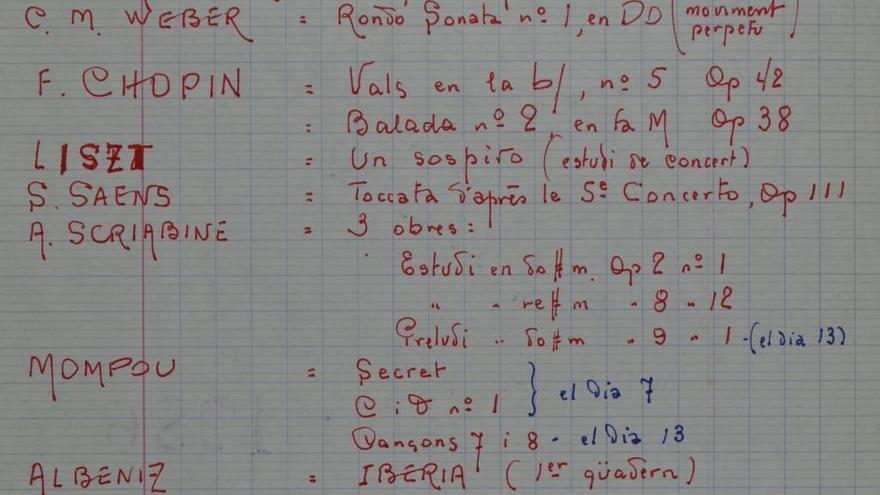 C. M. WEBER = Rondó Sonata nº 1, en DO (moviment perpetu)
F. CHOPIN = Vals en la b/, nº 5 Op 42
: Balada nº 2, en fa M Op 38
LISZT = Un sospiro (estudi de concert)
S. SAENS = Toccata d'après le 5è Concerto, Op 111
A. SCRIABINE = 3 obres:
Estudi en do#m. Op 2 nº 1
" " re#m " 8 " 12
Preludi " do#m " 9 " 1 - (el dia 13)
MOMPOU = Secret
C i D nº 1 } el dia 7
Dançons 7 i 8 - el dia 13
ALBENIZ = IBERIA (1er qüadern)